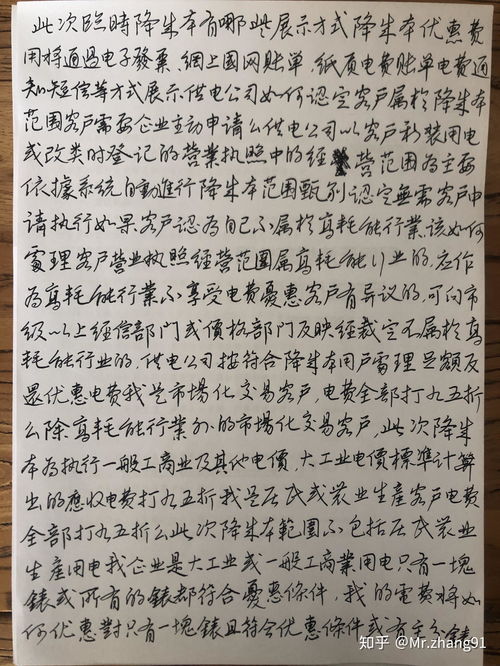 此次临時降成本有哪些展示方式降成本优惠费
用将通過电子發票、網上國网账单、纸质电费账单电费通
知短信等方式展示供电公司如何認定客戶属於降成本
范围客戶需要企业主动申请么供电公司以客戶新裝用电
或改类时登记的营業执照中的经营范围為主要
依據系统自動進行降成本范围甄别認定無需客戶申
请执行如果客戶認為自己不属於高耗能行業該如何
處理客戶营业执照經营范围属高耗能行业的，应作
為高耗能行業不享受电费優惠客戶有异议的，可向市
级以上經信部門或價格部門反映經裁定不属於高
耗能行业的，供电公司按符合降成本用戶處理足额返
還优惠电费我是市場化交易客戶，电费全部打九五折
么除高耗能行業外的市場化交易客戶，此次降成
本為执行一般工商业及其他电價，大工业电價標準计算
出的應收电费打九五折我是居民或农业生產客戶电费
全部打九五折么此次降成本範圍不包括居民农业
生產用电我企业是大工业或一般工商業用电只有一塊
錶或所有的錶都符合優惠條件，我的電费将如
何优惠對只有一塊錶且符合优惠條件或有
知乎 @Mr.zhang91